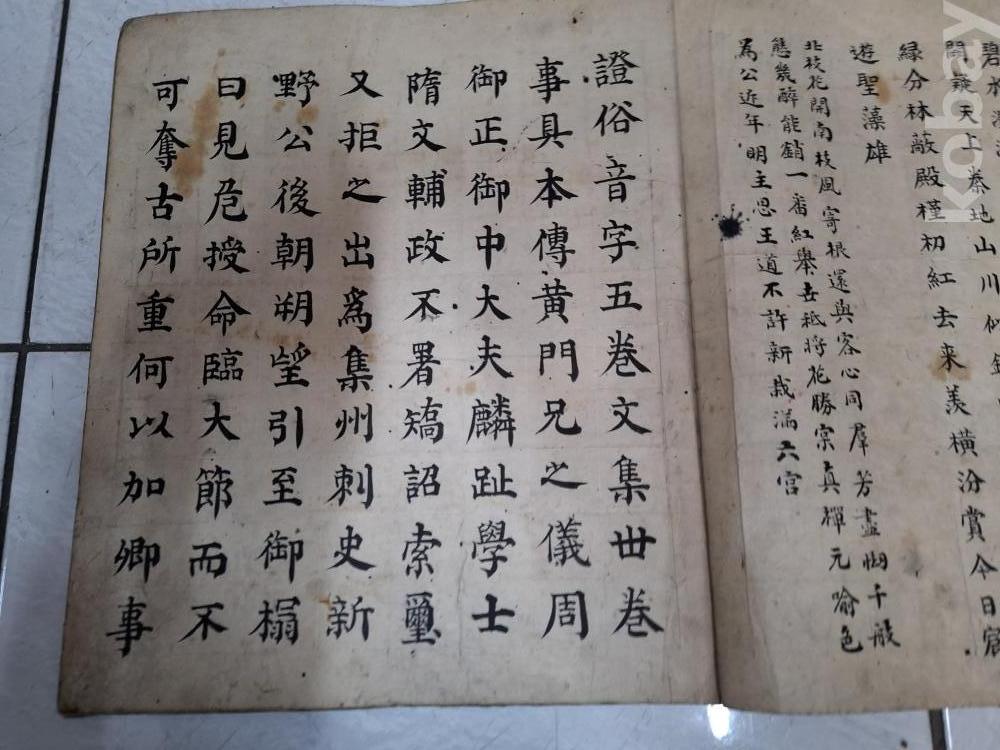 碧水
闕疑天上秦地山川似鏡
緑分林蔽殿槿初紅去來羨橫汾賞今日宸
遊聖藻雄
北枝花開南枝風寄根還與客心同羣芳盡怯千般
態幾醉能銷一番紅舉世秪將花勝宗真禪元喻色
為公近年明主思王道不許新栽滿六宮
證俗音字五巻文集丗巻
事具本傳黄門兄之儀周
御正御中大夫麟趾學士
隋文輔政不署矯詔索璽
又拒之出爲集州刺史新
野公後朝朔望引至御榻
曰見危授命臨大節而不
可奪古所重何以加卿事
kobay